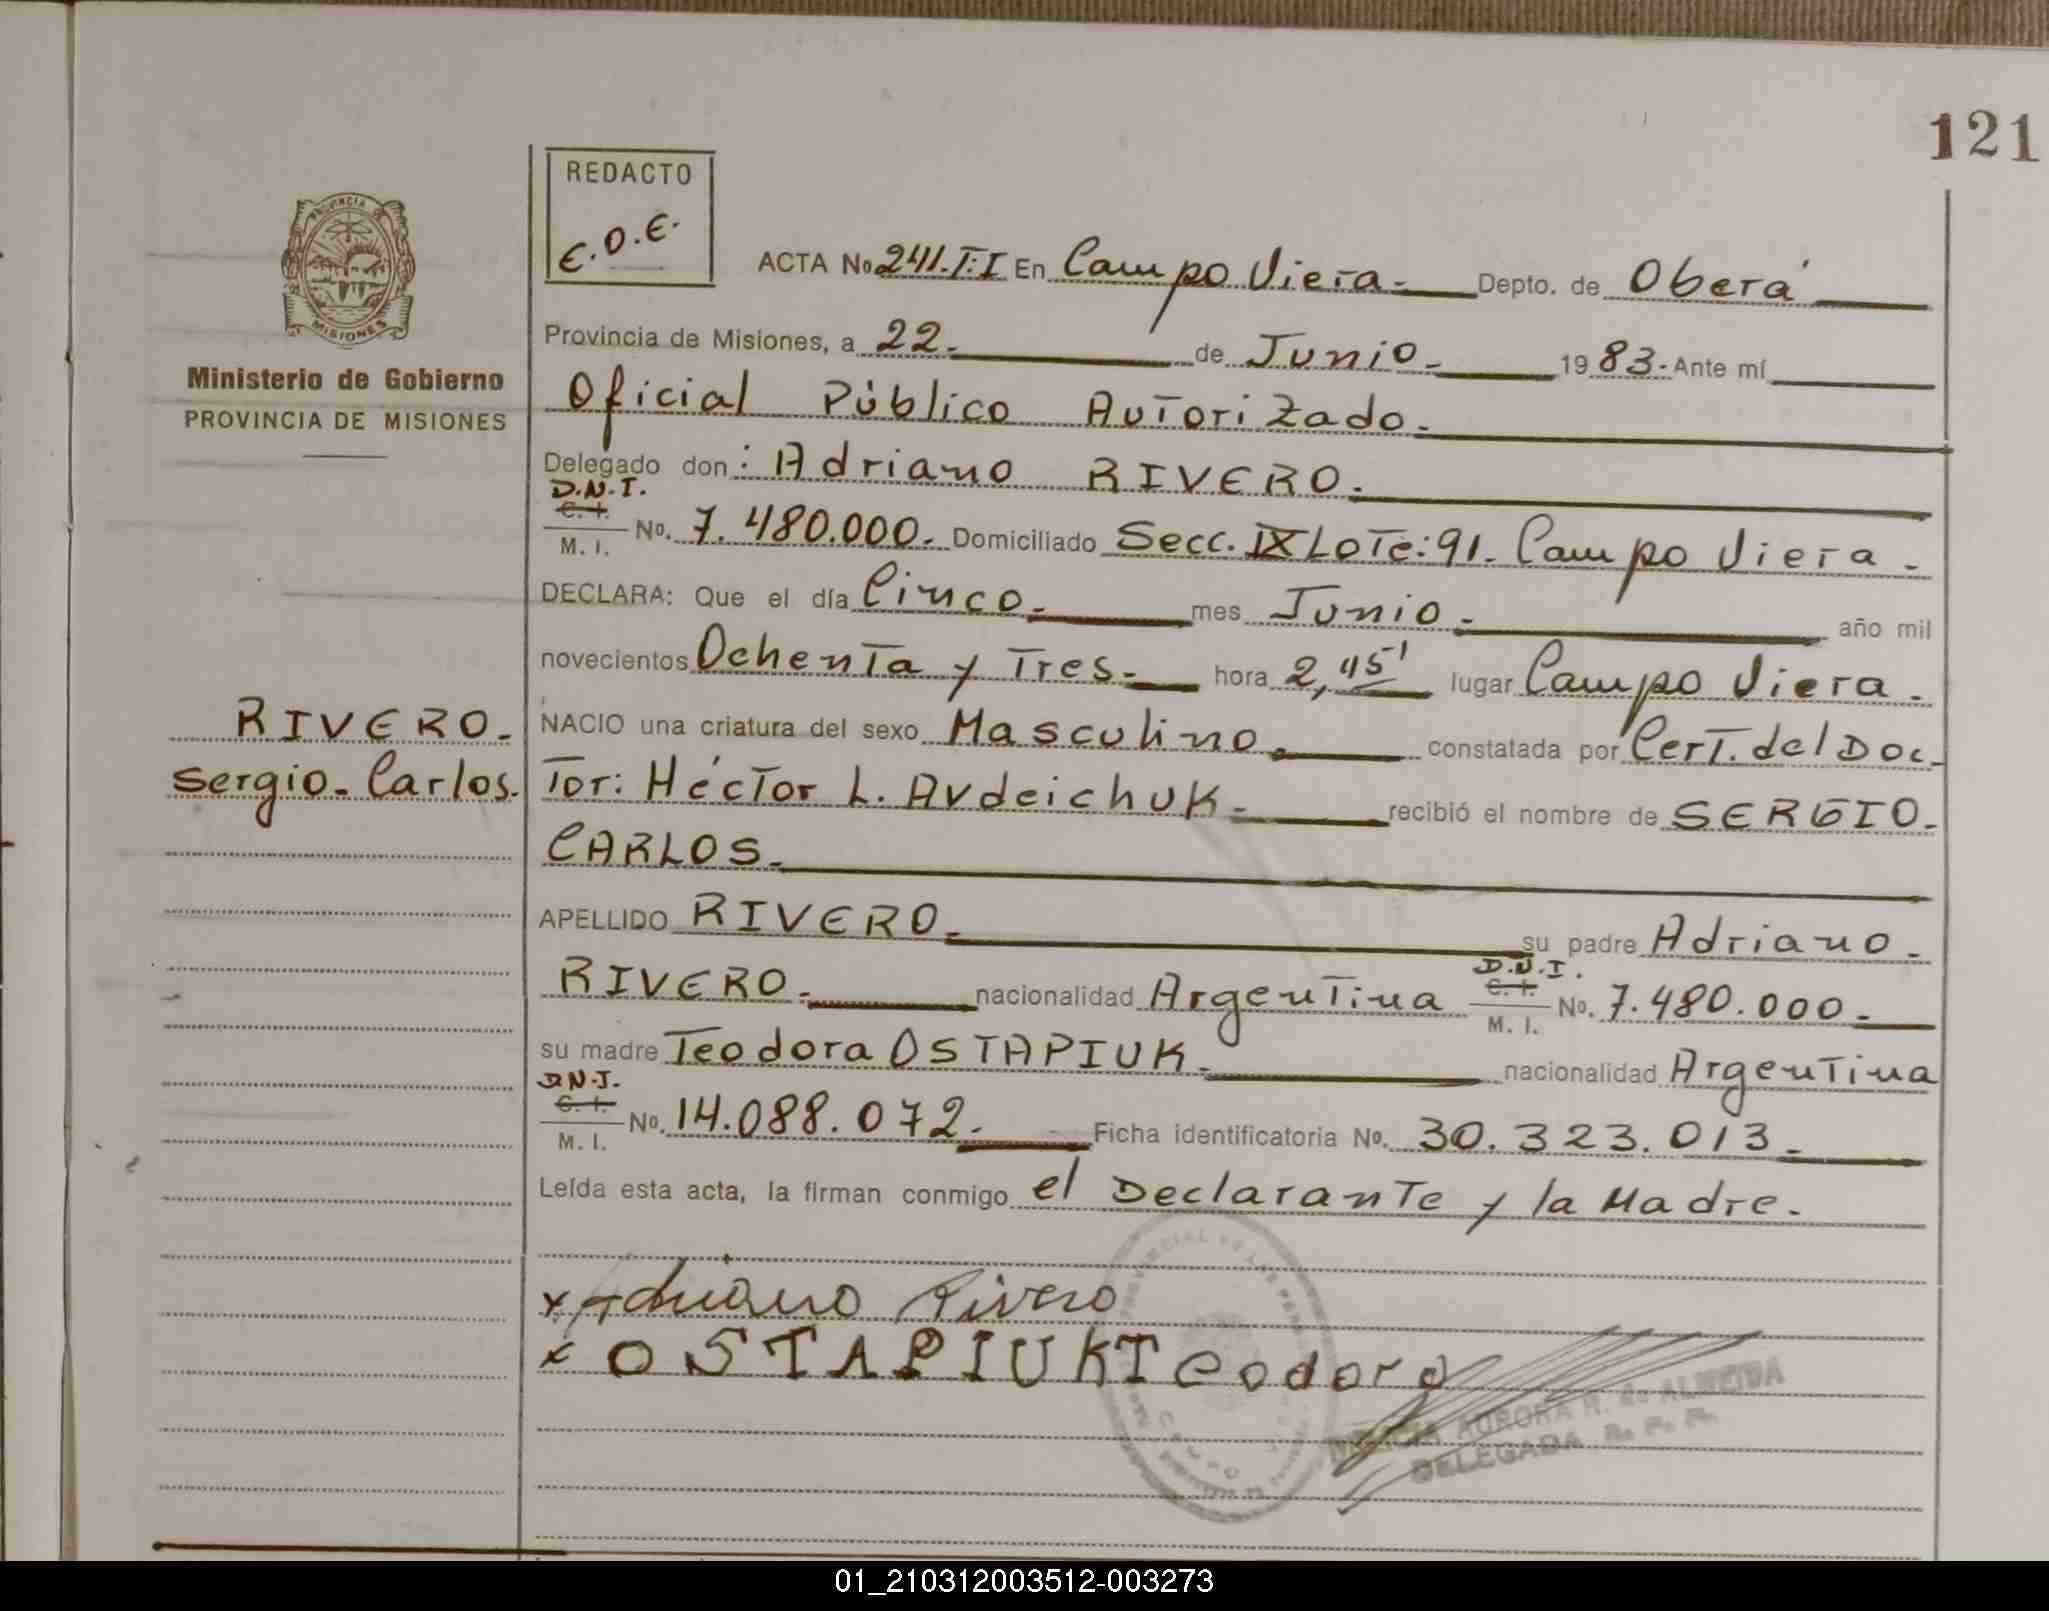 121
REDACTO
E.O.E.
PROVINCIA DE
MISIONES
Ministerio de Gobierno
PROVINCIA DE MISIONES
RIVERO.
Sergio. Carlos.
ACTA No 241.T:I En Campo Viera. Depto. de Oberá
Provincia de Misiones, a 22. de Junio. 1983. Ante mí
Oficial Público Autorizado.
Delegado don: Adriano RIVERO.
D.N.I.
C. I.
M. I. No. 7.480.000. Domiciliado Secc. IX Lote: 91. Campo Viera.
DECLARA: Que el día Cinco. mes Junio. año mil
novecientos Ochenta y Tres. hora 2,45' lugar Campo Viera.
NACIO una criatura del sexo Masculino. constatada por Cert. del Doc
tor: Héctor L. Avdeichuk. recibió el nombre de SERGIO.
CARLOS.
APELLIDO RIVERO. su padre Adriano.
D.N.I.
RIVERO. nacionalidad Argentina C. I. M. I. No. 7.480.000.
su madre Teodora OSTAPIUK. nacionalidad Argentina
D.N.I.
C. I.
M. I. No. 14.088.072. Ficha identificatoria No. 30.323.013.
Leída esta acta, la firman conmigo el Declarante y la Madre.
x Adriano Rivero
x OSTAPIUK Teodora
AURORA R. de ALMEIDA
DELEGADA R. P. P.
01_210312003512-003273